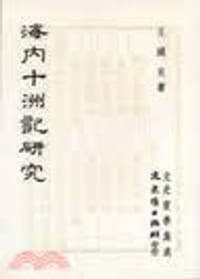 海內十洲記研究
王國良著
文史哲學集成
文史哲出版社印行